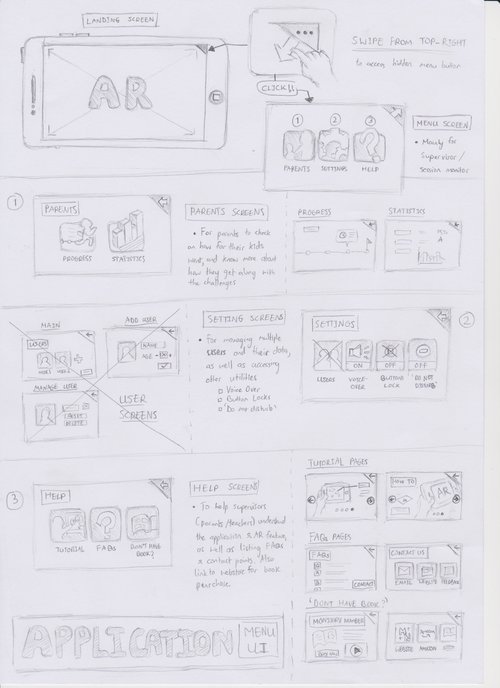 LANDING SCREEN
AR
SWIPE FROM TOP-RIGHT
to access hidden menu button
CLICK!!
1
2
3
PARENTS
SETTINGS
HELP
MENU SCREEN
• Mainly for
Supervisor/
session monitor
1
PARENTS
PROGRESS
STATISTICS
PARENTS SCREENS
• For parents to check
on how far their kids
went, and know more about
how they get along with
the challenges
PROGRESS
STATISTICS
MAIN
USERS
ADD USER
NAME
AGE
MANAGE USER
RESET
DELETE
USER
SCREENS
SETTING SCREENS
• For managing multiple
users and their data,
as well as accessing
other utilities
o Voice Over
o Button Locks
o 'Do not disturb'
SETTINGS
2
USERS
VOICE-
OVER
BUTTONS
LOCK
'DO NOT
DISTURB'
ON
OFF
OFF
3
HELP
TUTORIAL
FAQs
DON'T HAVE
BOOK?
HELP SCREENS
• To help supervisors
(parents/teachers) understand
the application & AR feature,
as well as listing FAQs
& contact points. Also
link to website for book
purchase.
TUTORIAL PAGES
HOW TO
AR
FAQs PAGES
FAQs
CONTACT
CONTACT US
EMAIL
"DON'T HAVE BOOK?"
WEBSITE
AMAZON
APPLICATION
MENU
UI